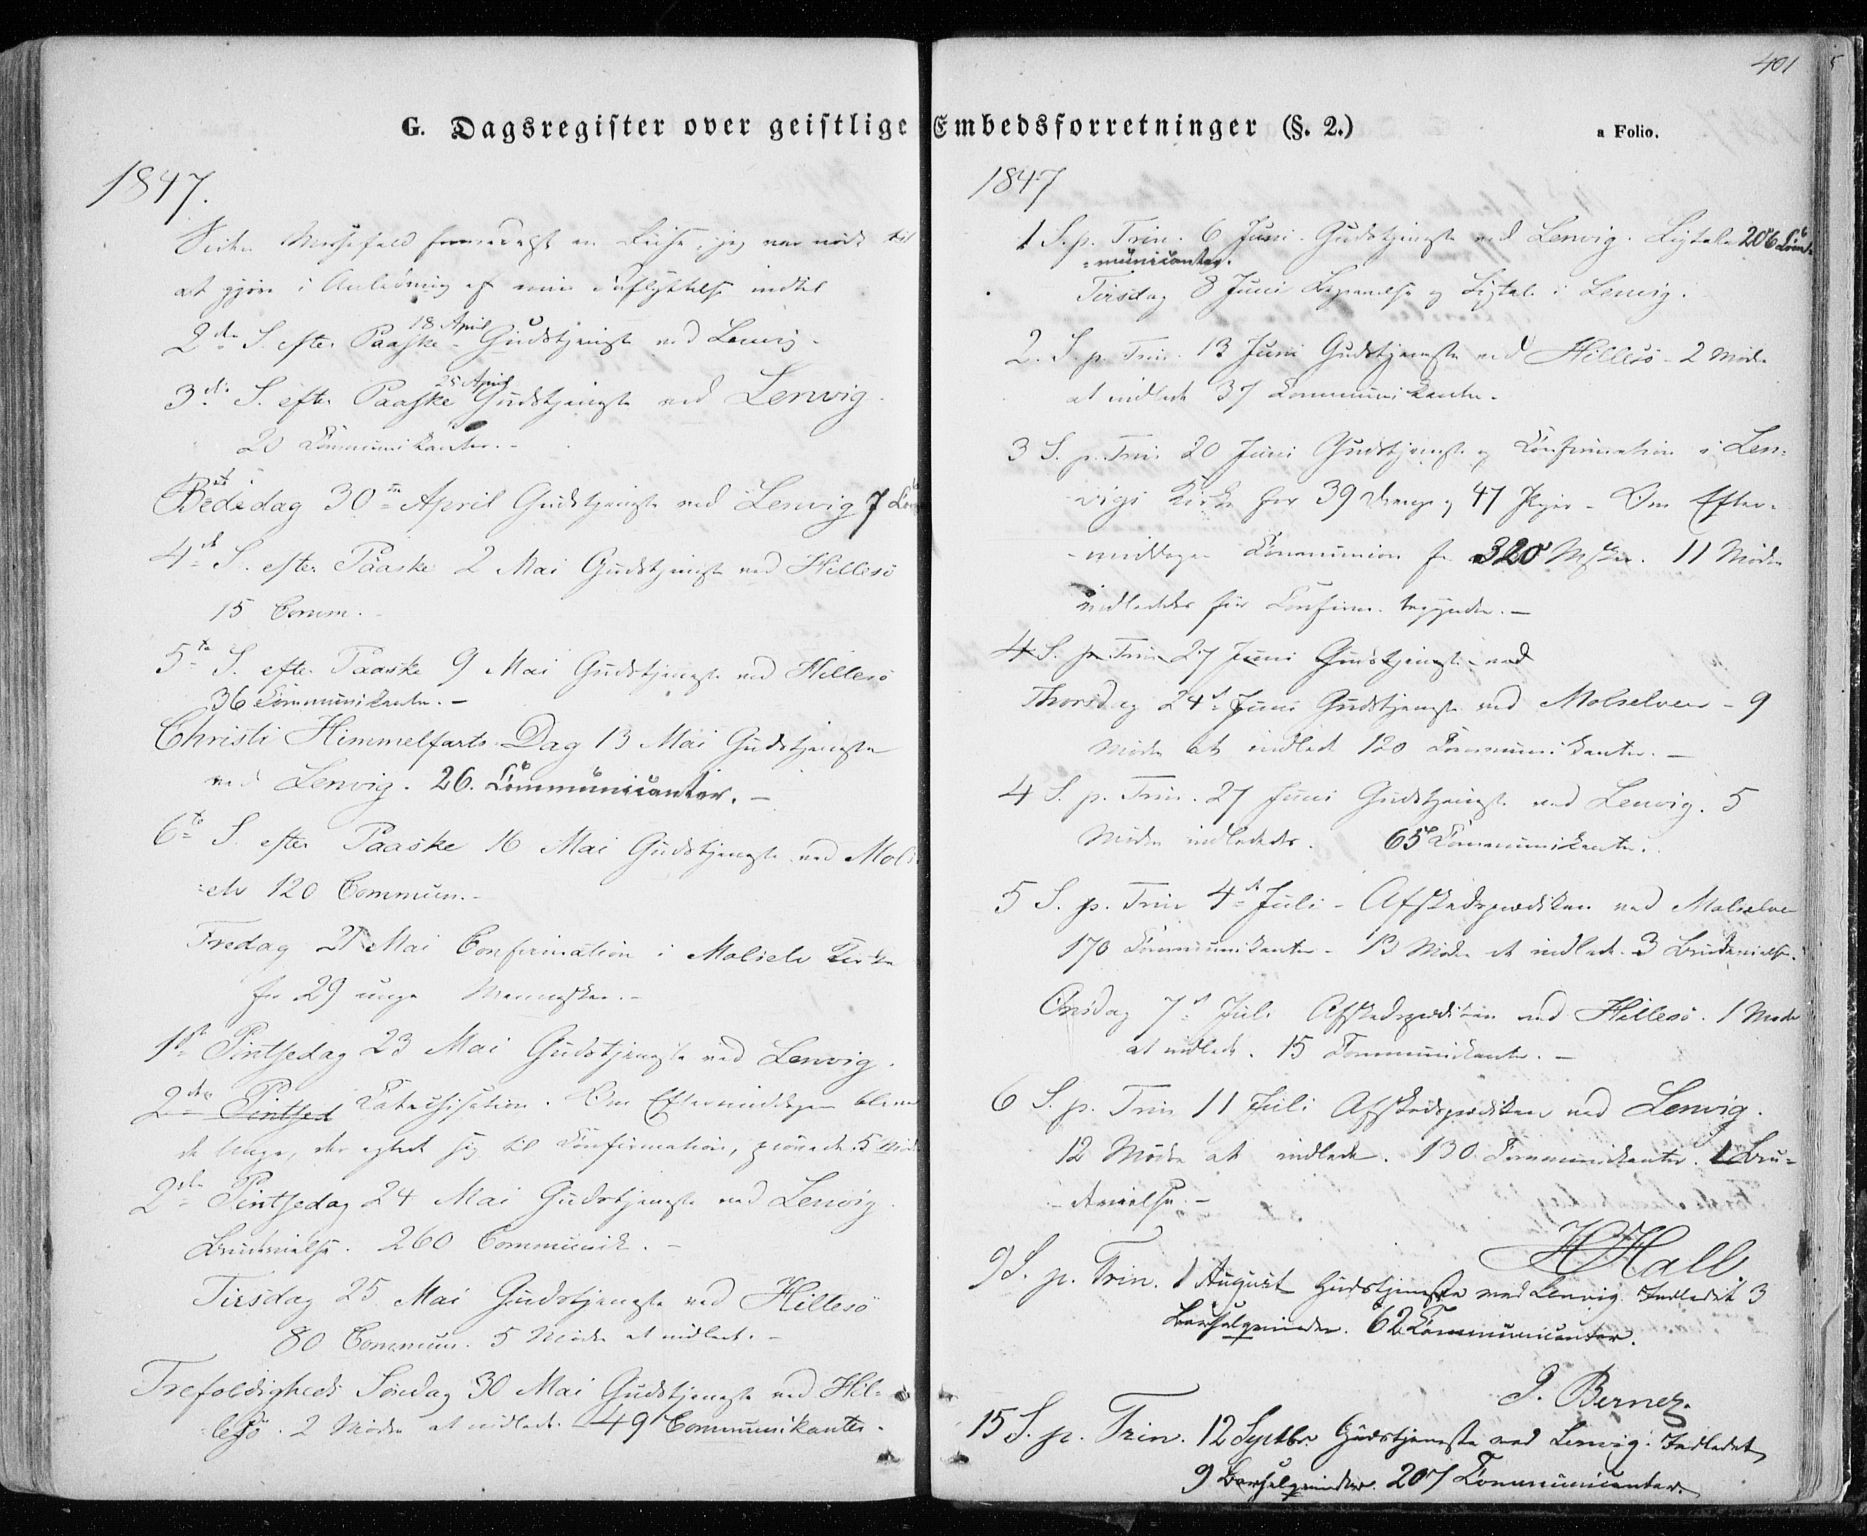 401
G. Dagsregister over geistlige Embedsforretninger (§. 2.)
a Folio.
1847.
Messefald en Reise, jeg var nødt til
at gjøre i Anledning af min Indflyttelse indtil
2den S. efter Paaske 18 April Gudstjeneste ved Lenvig.
3die S. efter Paaske 25 April Gudstjeneste ved Lenvig.
20 Communikanter. -
Bededag 30te April Gudstjeneste ved Lenvig 7 Com
4de S. efter Paaske 2 Mai Gudstjeneste ved Hillesø
15 Comm. -
5te S. efter Paaske 9 Mai Gudstjeneste ved Hillesø
36 Communikanter. -
Christi Himmelfarts Dag 13 Mai Gudstjeneste
ved Lenvig. 26. Communicanter. -
6te S. efter Paaske 16 Mai Gudstjeneste ved Mols
elv 120 Commun. -
Fredag 21 Mai Confirmation i Molselv Kirke
for 29 unge Mennesker. -
1ste Pintsedag 23 Mai Gudstjeneste ved Lenvig.
2den Pintsed Katechisation. Om Eftermiddagen bleve
de Unge, der agted sig til Confirmation, prøvede. 5 Mødre
2den Pintsedag 24 Mai Gudstjeneste ved Lenvig.
Brudevielse. 260 Communik. -
Tirsdag 25 Mai Gudstjeneste ved Hillesø
80 Commun. 5 Mødre at indlede. -
Trefoldigheds Søndag 30 Mai Gudstjeneste ved Hil-
lesø. 2 Mødre at indlede. 49 Communikanter.
1847
1 S. p. Trin. 6 Juni. Gudstjeneste ved Lenvig. Ligtale 206 Com-
-municanter.
Tirsdag 8 Juni Begravelse og Ligtale i Lenvig.
2. S. p. Trin. 13 Juni Gudstjeneste ved Hillesø - 2 Mødre
at indlede 37 Communikanter.
3 S. p. Trin. 20 Juni Gudstjeneste og Confirmation i Len-
vigs Kirke for 39 Drenge og 47 Piger - Om Efter-
-middagen Communion for 320 Msker. 11 Mødre
indledtes før Confirm. begyndte. -
4 S. p. Trin 27 Juni Gudstjeneste ved
Thorsdag 24de Juni Gudstjeneste ved Molselven - 9
Mødre at indlede 120 Communikanter. -
4 S. p. Trin. 27 Juni Gudstjeneste ved Lenvig. 5
Mødre indledede. 65 Communikanter.
5 S. p. Trin 4de Juli - Afskedsprædiken ved Molselven
170 Communikanter - 13 Mødre at indlede. 3 Brudevielser.
Onsdag 7de Juli Afskedsprædiken ved Hillesø. 1 Moder
at indlede. 15 Communikanter. -
6 S. p. Trin 11 Juli Afskedsprædiken ved Lenvig.
12 Mødre at indlede. 130 Communikanter. 1 Bru-
-devielse. -
H Hall
9 S. p. Trin. 1 August Gudstjeneste ved Lenvig. Indledet 3
Barselqvinder. 62 Communicanter.
J. Berner.
15 S. p. Trin. 12 Septbr. Gudstjeneste ved Lenvig. Indledet
9 Barselqvinder. 207 Communicanter.